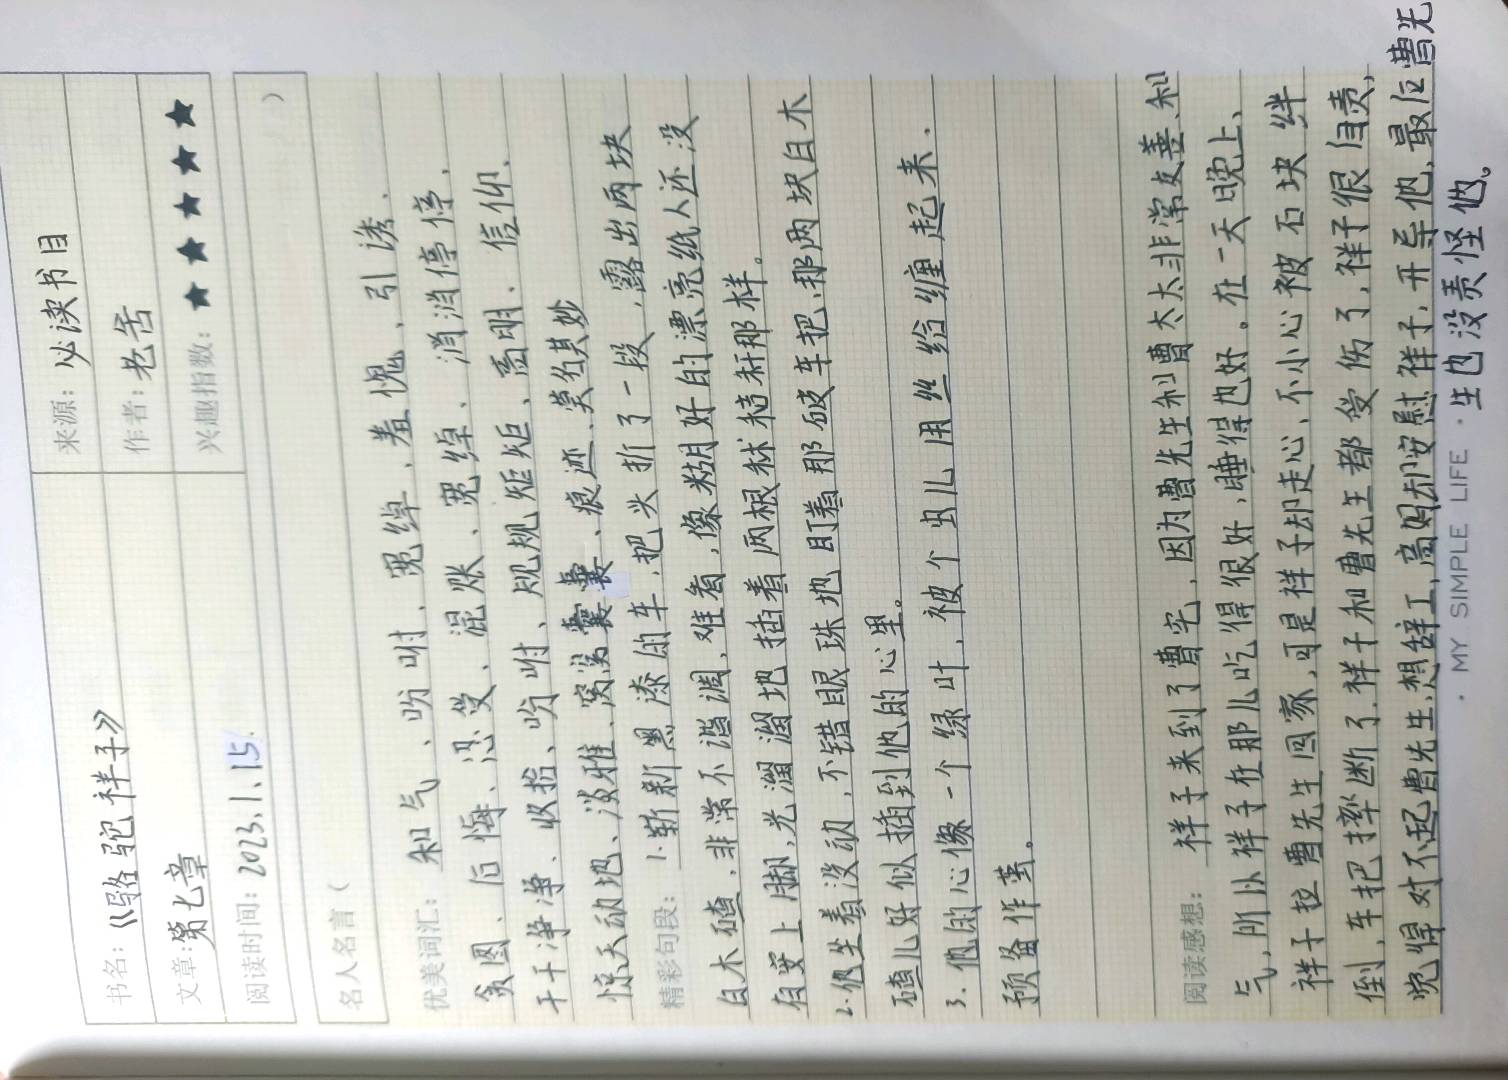 书名：《骆驼祥子》 来源：必读书目
文章：第七章 作者：老舍
阅读时间：2023.1.15. 兴趣指数：★ ★ ★ ★ ★
名人名言（ ）
优美词汇：和气、吩咐、宽绰、羞愧、引诱、
贪图、后悔、忍受、混账、宽绰、消消停停、
干干净净、收拾、吩咐、规规矩矩、高明、信仰、
惊天动地、淡雅、窝窝囊囊、痕迹、莫名其妙
精彩句段：1.崭新黑漆的车，把头折了一段，露出两块
白木碴，非常不谐调，难看，像糊好的漂亮纸人还没
有安上脚，光溜溜地插着两根秫秸秆那样。
2.他坐着没动，不错眼珠地盯着那破车把，那两块白木
碴儿好似插到他的心里。
3.他的心像一个绿叶，被个虫儿用丝给缠起来，
预备作茧。
阅读感想：祥子来到了曹宅，因为曹先生和曹太太非常友善、和
气，所以祥子在那儿吃得很好，睡得也好。在一天晚上、
祥子拉曹先生回家，可是祥子却走心，不小心被石块绊
倒，车把摔断了，祥子和曹先生都受伤了，祥子很自责，
觉得对不起曹先生，想辞工，高妈却安慰祥子，开导他，最后曹先
生也没责怪他。
· MY SIMPLE LIFE ·